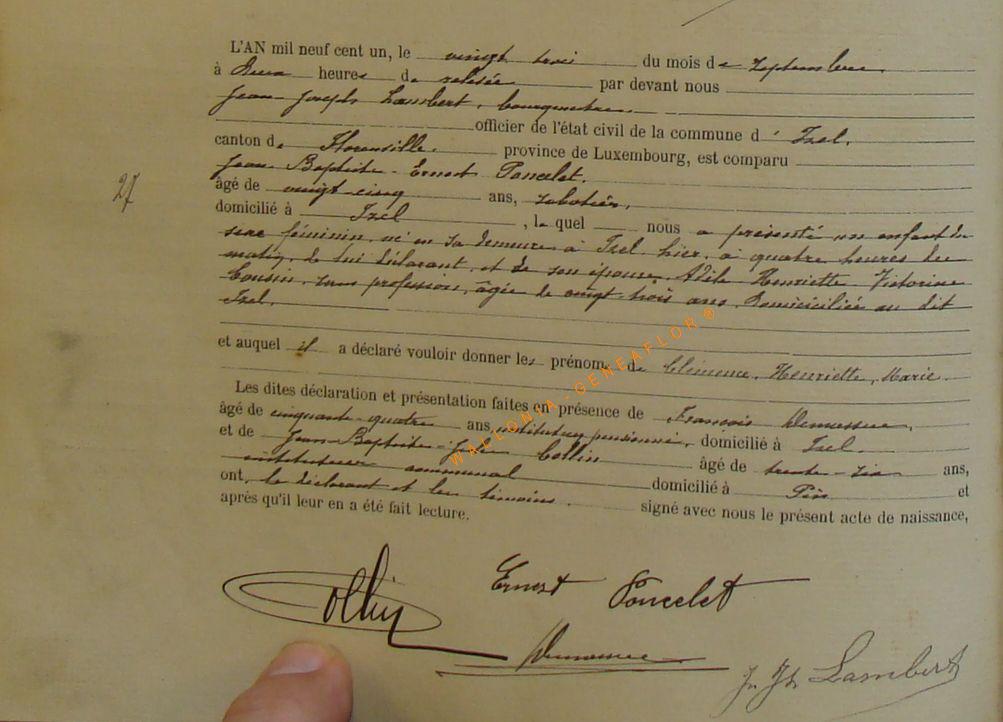 L'AN mil neuf cent un, le vingt trois du mois de Septembre
à Deux heures de relevée par devant nous
Jean-Joseph Lambert, bourgmestre
officier de l'état civil de la commune d' Izel,
canton de Florenville, province de Luxembourg, est comparu
Jean-Baptiste-Ernest Poncelet,
27
âgé de vingt cinq ans, sabotier,
domicilié à Izel, lequel nous a présenté un enfant du
sexe féminin, né en sa demeure à Izel hier, à quatre heures du
matin, de lui déclarant, et de son épouse, Adèle Henriette Victorine
Cousin, sans profession, âgée de vingt-trois ans, domiciliée au dit
Izel.
et auquel il a déclaré vouloir donner les prénoms de Clémence, Henriette, Marie.
Les dites déclaration et présentation faites en présence de François
âgé de cinquante quatre ans, instituteur pensionné, domicilié à Izel
et de Jean-Baptiste-Jules Collin âgé de trente-six ans,
instituteur communal domicilié à Pin et
ont, le déclarant et les témoins, signé avec nous le présent acte de naissance,
après qu'il leur en a été fait lecture.
WALLONIA-GENEAFLOR®
Collin
Ernest Poncelet
J. Jh Lambert